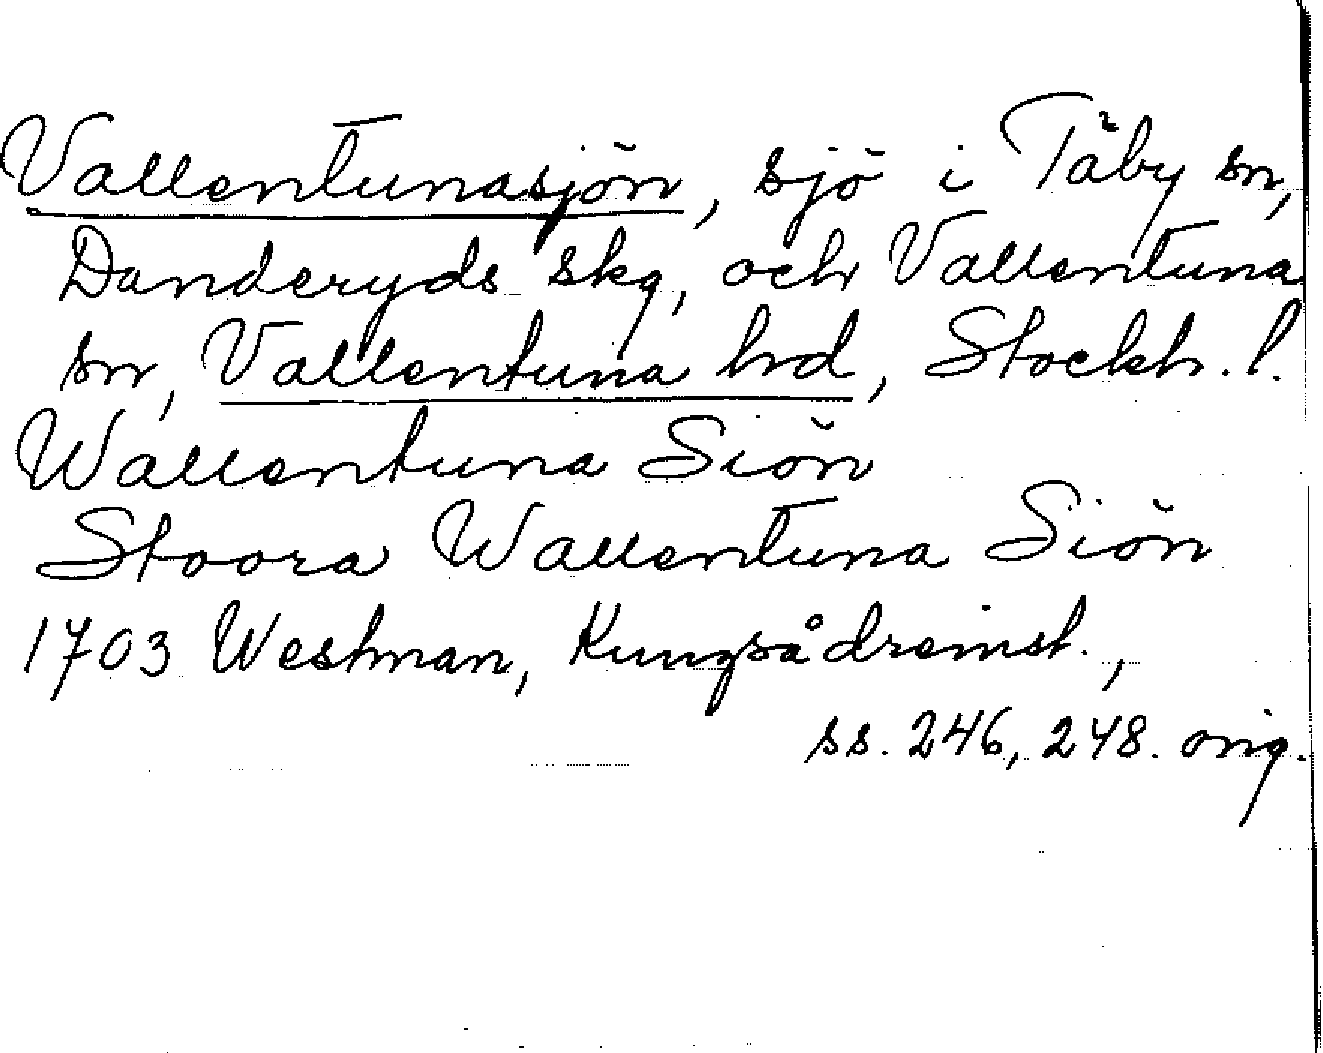 Vallentunasjön, sjö i Täby sn,
Danderyds skg, och Vallentuna
sn, Vallentuna hd, Stockh. l.
Wallentuna Siön
Stoora Wallentuna Siön
1703 Westman, Kungsådreinst.,
ss. 246, 248. orig.